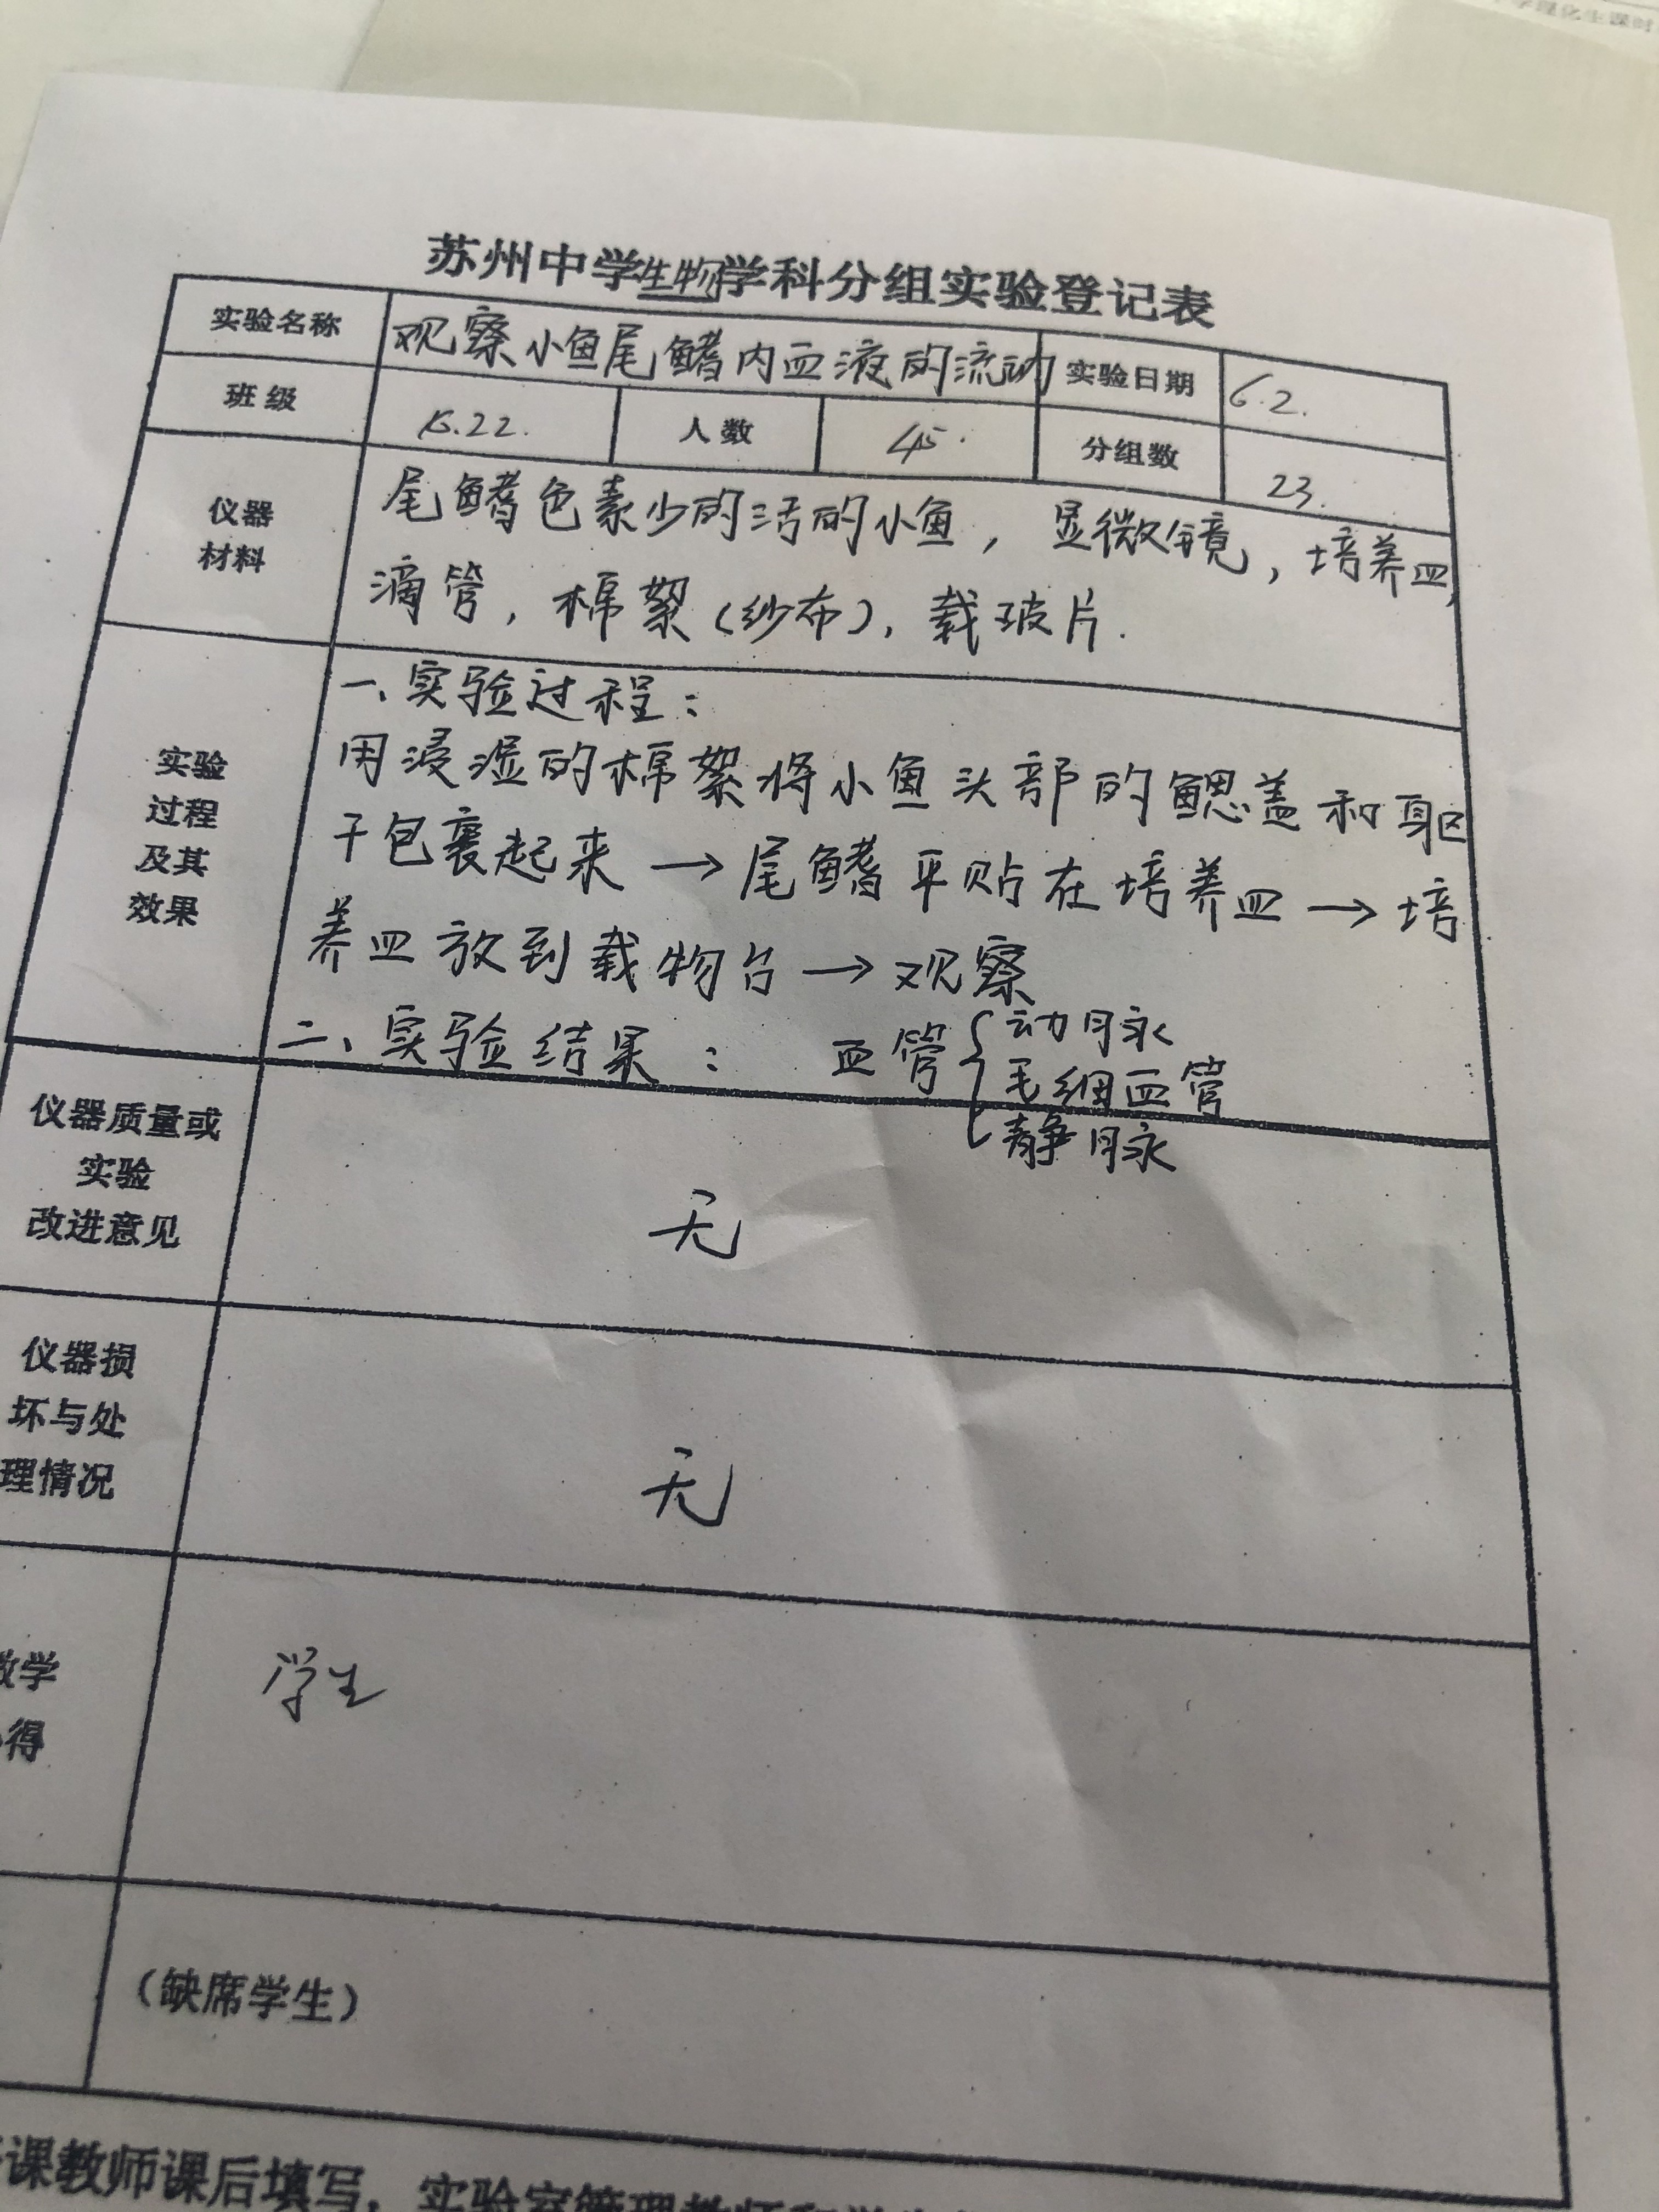 学理化生课时
苏州中学生物学科分组实验登记表
实验名称 观察小鱼尾鳍内血液的流动 实验日期 6.2.
班级 15.22. 人数 45. 分组数 23.
仪器
材料
尾鳍色素少的活的小鱼，显微镜，培养皿，
滴管，棉絮（纱布），载玻片.
实验
过程
及其
效果
一、实验过程：
用浸湿的棉絮将小鱼头部的鳃盖和躯
干包裹起来→尾鳍平贴在培养皿→培
养皿放到载物台→观察
二、实验结果： 血管{动脉
毛细血管
静脉
仪器质量或
实验
改进意见
无
仪器损
坏与处
理情况
无
教学
心得
学生
（缺席学生）
课教师课后填写，实验室管理教师和学生